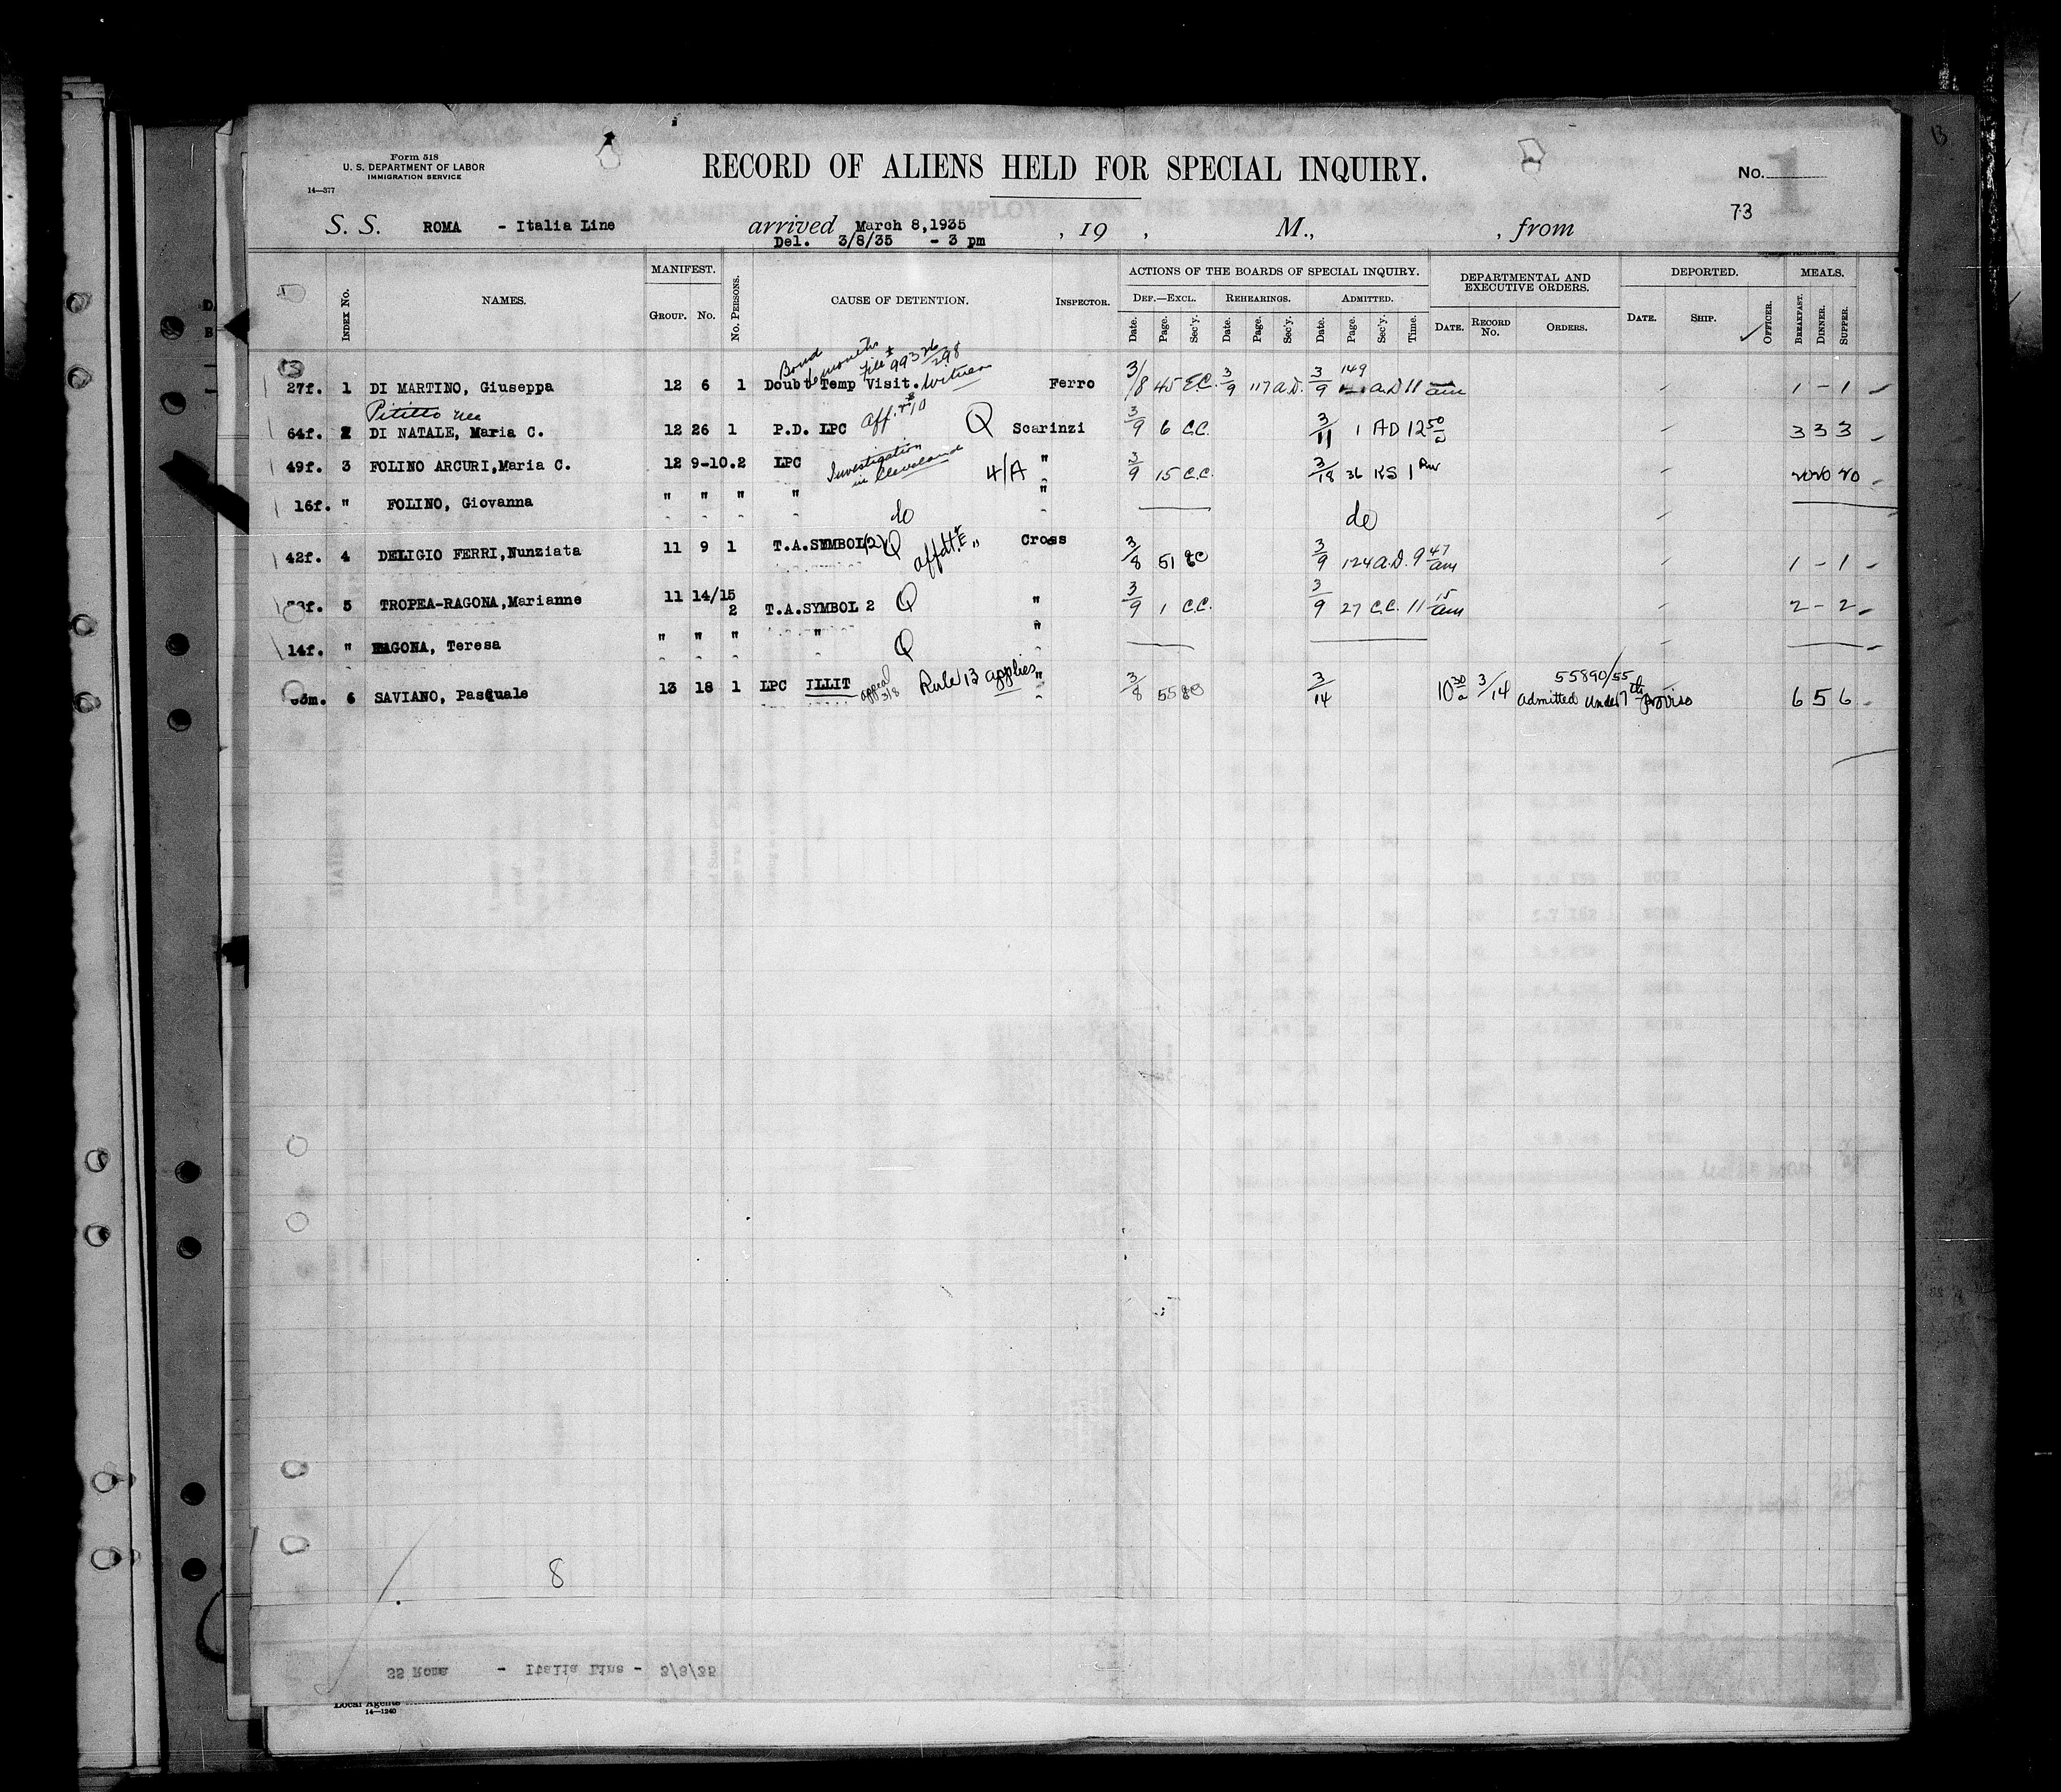 Form 518
U. S. DEPARTMENT OF LABOR
IMMIGRATION SERVICE
14—377
RECORD OF ALIENS HELD FOR SPECIAL INQUIRY.
No.
1
73
S. S. ROMA - Italia Line arrived March 8, 1935 , 19 , M., , from
Del. 3/8/35 - 3 pm
INDEX No. NAMES. MANIFEST. GROUP. No. No. PERSONS. CAUSE OF DETENTION. INSPECTOR. ACTIONS OF THE BOARDS OF SPECIAL INQUIRY. DEPARTMENTAL AND EXECUTIVE ORDERS. DEPORTED. MEALS.
DEF.—EXCL. REHEARINGS. ADMITTED.
Date. Page. Sec'y. Date. Page. Sec'y. Date. Page. Sec'y. Time. DATE. RECORD No. ORDERS. DATE. SHIP. OFFICER. BREAKFAST. DINNER. SUPPER.
Bond months File # 99326/298 149
27f. 1 DI MARTINO, Giuseppa 12 6 1 Doubt Temp Visit. Witness Ferro 3/8 45 E.C. 3/9 117 A.D. 3/9 A.D 11 am 1 - 1
Pititto nee
64f. 2 DI NATALE, Maria C. 12 26 1 P.D. LPC Q Scarinzi 3/9 6 C.C. 3/11 1 AD 12 50 3 3 3
49f. 3 FOLINO ARCURI, Maria C. 12 9-10. 2 LPC Investigation in Cleveland 4/A " 3/9 15 C.C. 3/18 36 KS 1 PM 20 20 20
16f. " FOLINO, Giovanna " " " " do " do
42f. 4 DELIGIO FERRI, Nunziata 11 9 1 T.A. SYMBOL (2) Q Cross 3/8 51 3/9 124 A.D. 9 47 am 1 - 1
5 TROPEA-RAGONA, Marianne 11 14/15 2 T.A. SYMBOL 2 Q " 3/9 1 C.C. 3/9 27 C.C. 11 15 am 2 - 2
14f. " RAGONA, Teresa " " " " Q "
6 SAVIANO, Pasquale 13 18 1 LPC ILLIT appeal 3/8 Rule 13 applies " 3/8 55 3/14 10 30 a 3/14 55890/55 Admitted under 7th Proviso 6 5 6
8
SS Roma - Italia Line - 3/8/35
Local Agents
14—1240